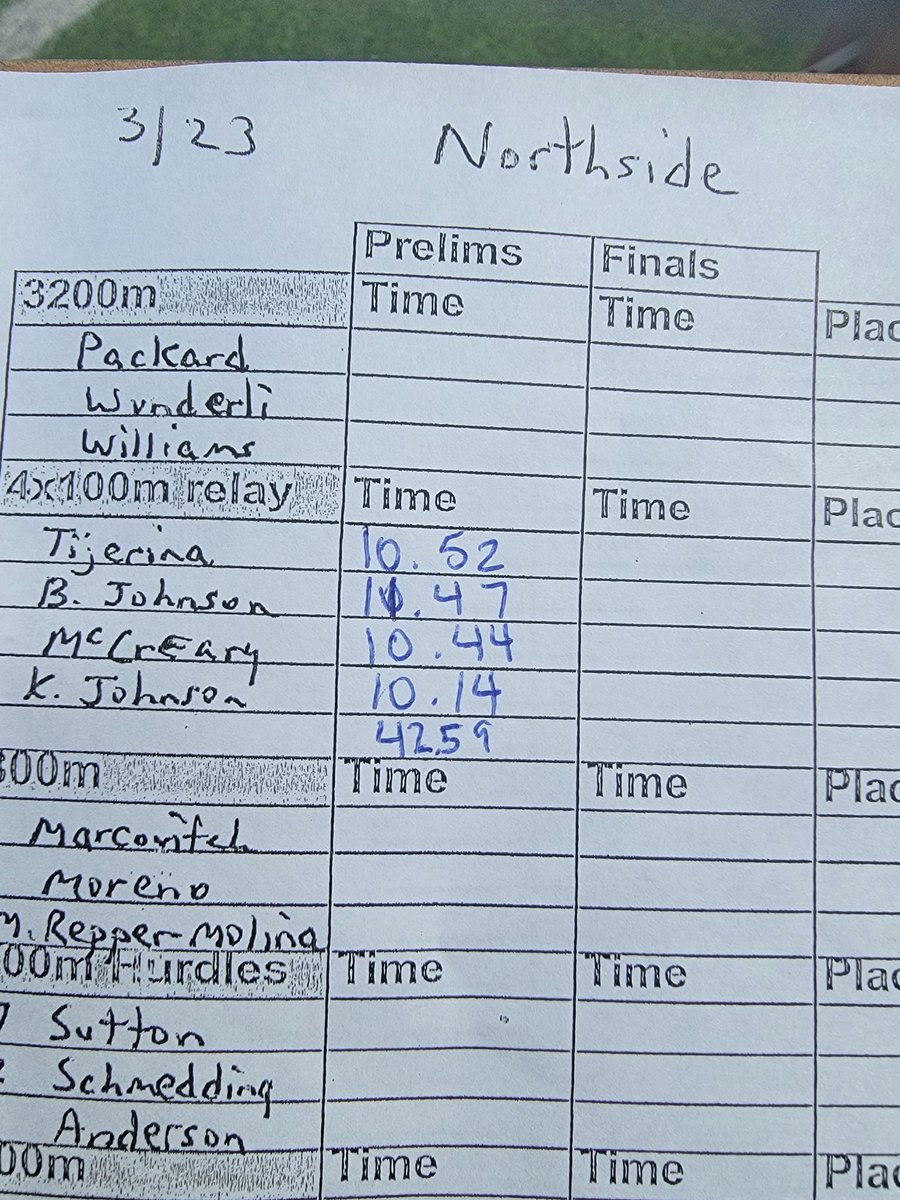 3/23 Northside
Prelims Finals
3200m Time Time Plac
Packard
Wunderli
Williams
4x100m relay Time Time Plac
Tijerina 10.52
B. Johnson 11.47
McCrEary 10.44
K. Johnson 10.14
42.59
800m Time Time Plac
Marcovitch
Moreno
M. Repper-Molina
00m Hurdles Time Time Plac
Sutton
Schmedding
Anderson
00m Time Time Plac